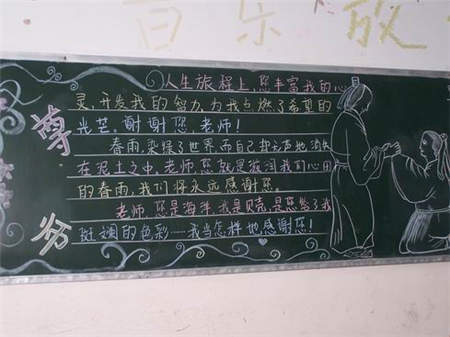 乐 放
人生旅程上,您丰富我的心
灵,开发我的智力,为我点燃了希望的
光芒。谢谢您,老师!
春雨,染绿了世界,而自己却无声地消失
在泥土之中。老师,您就是滋润我们心田
的春雨,我们将永远感谢您。
老师,您是海洋,我是贝壳,是您给了我
斑斓的色彩…我当怎样地感谢您!
尊